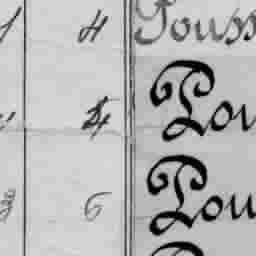 4 Pouss
4 Pou
6 Pou